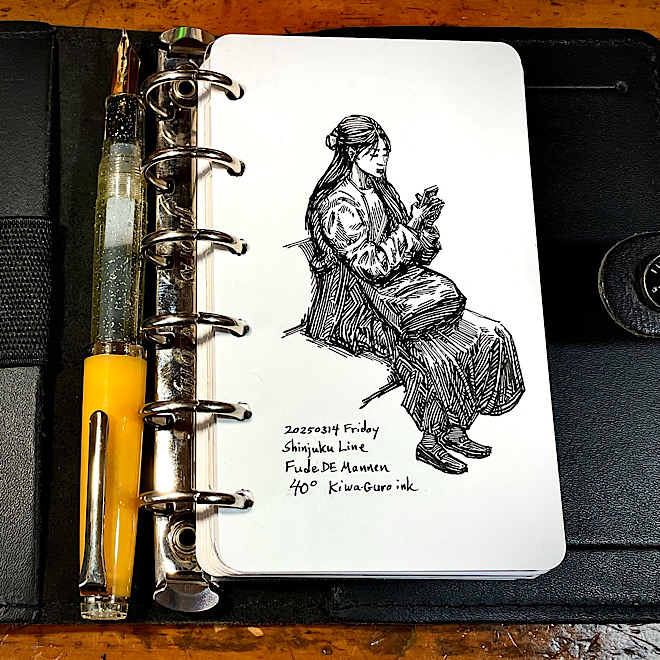 20250314 Friday
Shinjuku Line
Fude DE Mannen
40° Kiwa-Guro ink